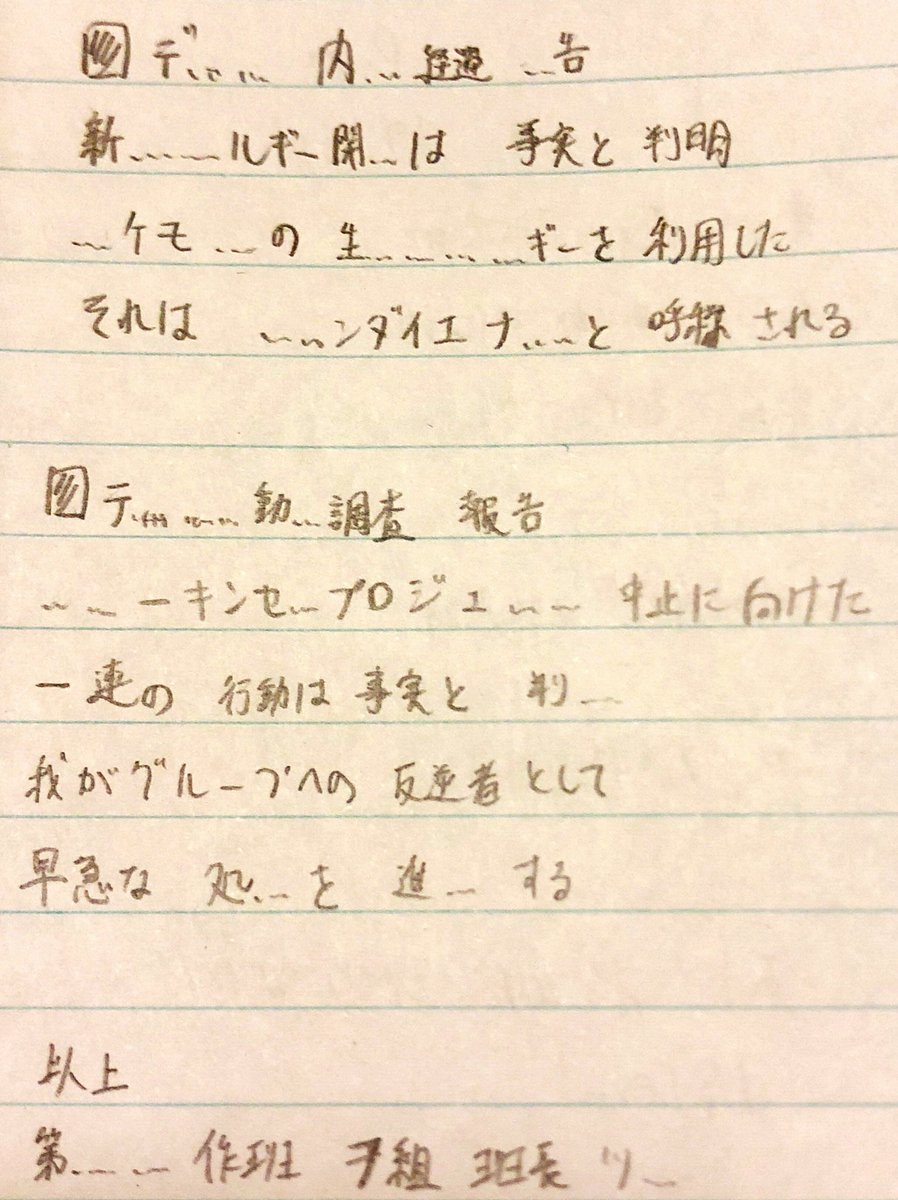 デ……… 内…経過 …告
新………ルギー開…は 事実と 判明
…ケモ …の 生…………ギーを 利用した
それは ……ンダイエナ……と 呼称 される
デ……… 動…調査 報告
……ーキンセ…プロジェ…… 中止に 向けた
一連の 行動は 事実と 判…
我がグループへの 反逆者 として
早急な 処…を 進… する
以上
第…… 作班 ヲ組 班長 ツ…